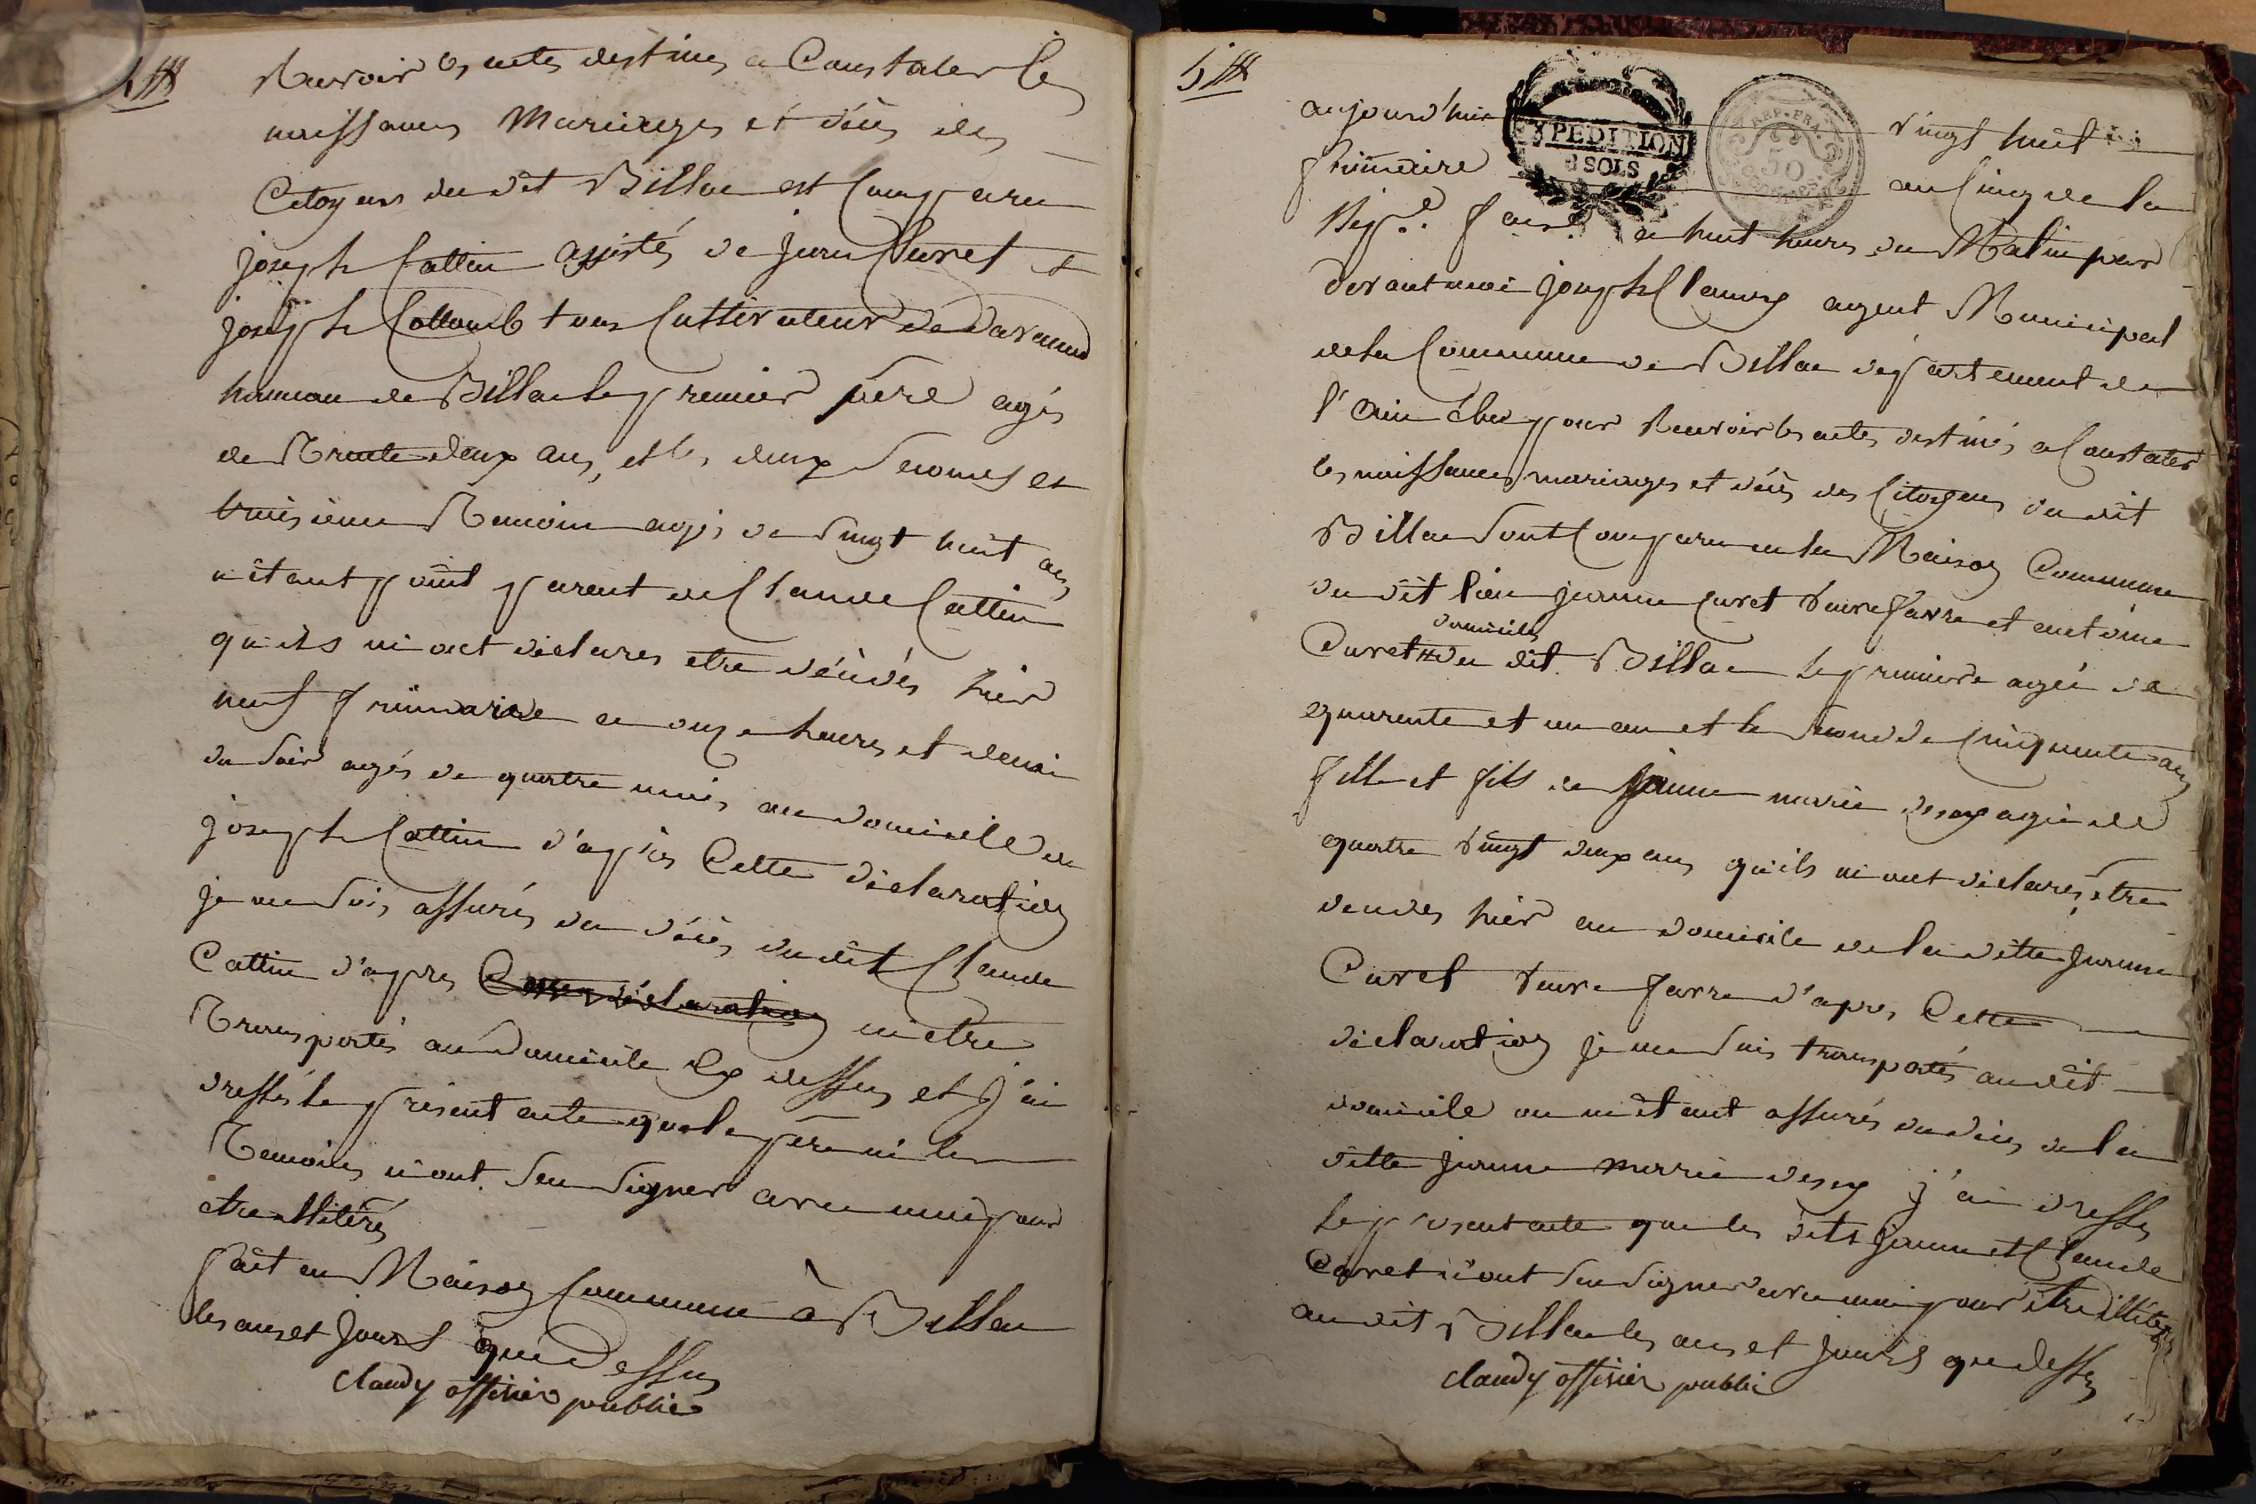 Recevoir les actes destinés a Constater les
naissances Mariages et décès des
Citoyens du dit Billac est Comparu
joseph Cattin assistés de jean Curet et
joseph Collomb tous Cultivateur de
hameau de Billac le premier père agés
de Trente deux ans, et les deux seconds et
troisieme Temoins agés de vingt huit ans
n'étant point parent de Claude Cattin
qu'ils m'ont déclarés etre décédés hier
neuf frimaire a onze heures et demi
du soir agés de quatre mois au domicile du
joseph Cattin d'après Cette déclaration
je me suis assurés du décès du dit Claude
Cattin d'apres m'etre
Transportés au Domicile dessus et j'ai
dressés le présent acte que le père ni les
Temoins n'ont seu signer avec moi pour
etre illiterés
fait en Maison Commune à Billac
les ans et jours que Dessus
claudy officier public
5
aujourd'hui vingt huit
EXPEDITION
3 SOLS
REP. FRA.
50
frimaire an Cinq de la
Rep.e franc.e a huit heures du Matin par
devant moi joseph Claudy agent Municipal
de la Commune de Billac département de
l'Ain élu pour Recevoir les actes destinés a Constater
les naissances mariages et décès des Citoyens du dit
Billac sont Comparu en la Maison Commune
du dit lieu jeanne Curet veuve favre et antoine
domiciles
Curet # du dit Billac le premiere agée de
quarente et un an et le second de Cinquente ans
fille et fils de jeanne marie agée de
quatre vingt deux ans qu'ils m'ont déclarés, étre
decedes hier au domicile de la ditte jeanne
Curet veuve favre d'apres Cette
déclaration je me suis transportés au dit
domicile ou m'étant assurés du décès de la
ditte jeanne marie j'ai dressés
le présent acte que les dits jeanne et Claude
Curet n'ont seu signer avec moi pour être illitérés
au dit Billac les ans et jours que dessus
claudy officier public